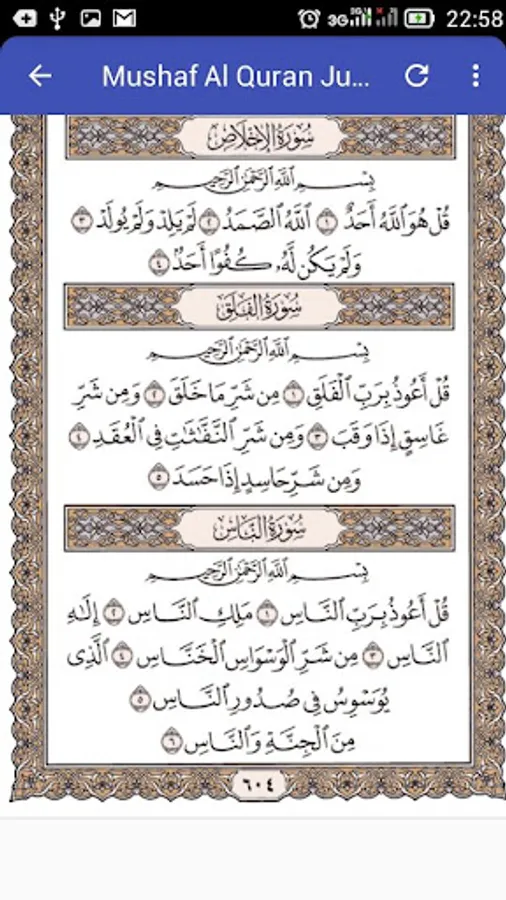 22:58
3G 3G
Mushaf Al Quran Ju...
سُورَةُ الإِخْلَاصِ
بِسْمِ اللَّهِ الرَّحْمَٰنِ الرَّحِيمِ
قُلْ هُوَ اللَّهُ أَحَدٌ ١ اللَّهُ الصَّمَدُ ٢ لَمْ يَلِدْ وَلَمْ يُولَدْ ٣
وَلَمْ يَكُن لَّهُۥ كُفُوًا أَحَدٌ ٤
سُورَةُ الفَلَقِ
بِسْمِ اللَّهِ الرَّحْمَٰنِ الرَّحِيمِ
قُلْ أَعُوذُ بِرَبِّ الْفَلَقِ ١ مِن شَرِّ مَا خَلَقَ ٢ وَمِن شَرِّ
غَاسِقٍ إِذَا وَقَبَ ٣ وَمِن شَرِّ النَّفَّاثَاتِ فِي الْعُقَدِ ٤
وَمِن شَرِّ حَاسِدٍ إِذَا حَسَدَ ٥
سُورَةُ النَّاسِ
بِسْمِ اللَّهِ الرَّحْمَٰنِ الرَّحِيمِ
قُلْ أَعُوذُ بِرَبِّ النَّاسِ ١ مَلِكِ النَّاسِ ٢ إِلَٰهِ
النَّاسِ ٣ مِن شَرِّ الْوَسْوَاسِ الْخَنَّاسِ ٤ الَّذِي
يُوَسْوِسُ فِي صُدُورِ النَّاسِ ٥
مِنَ الْجِنَّةِ وَالنَّاسِ ٦
٦٠٤